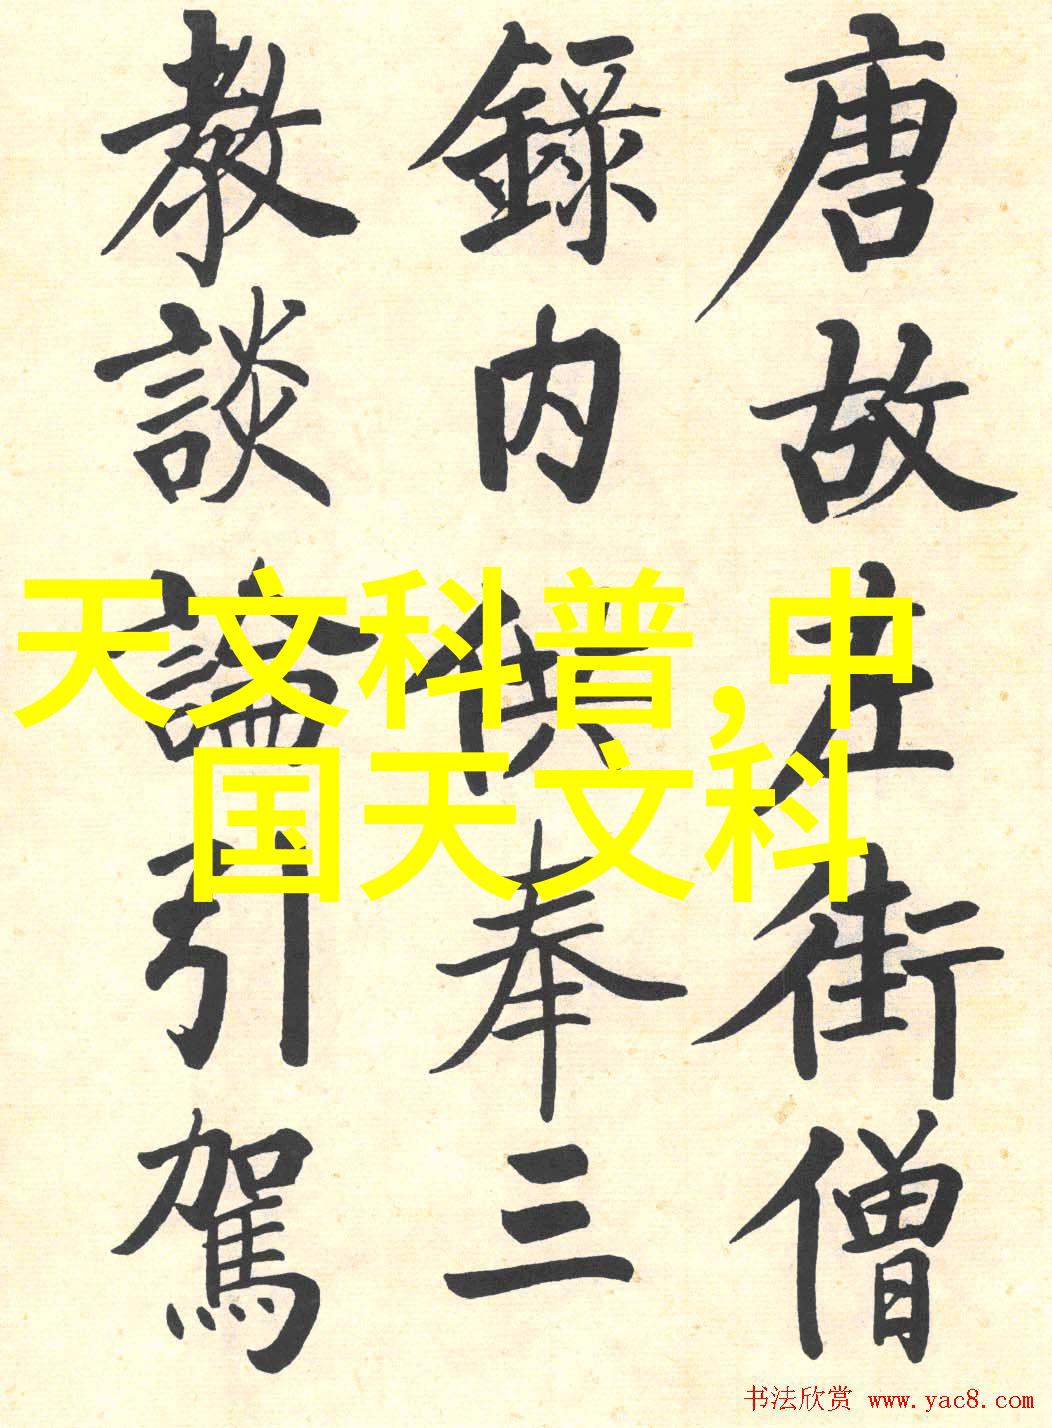 唐故左街僧
錄内供奉三
教談論引駕
天文科普,中
国天文科
书法欣赏 www.yac8.com